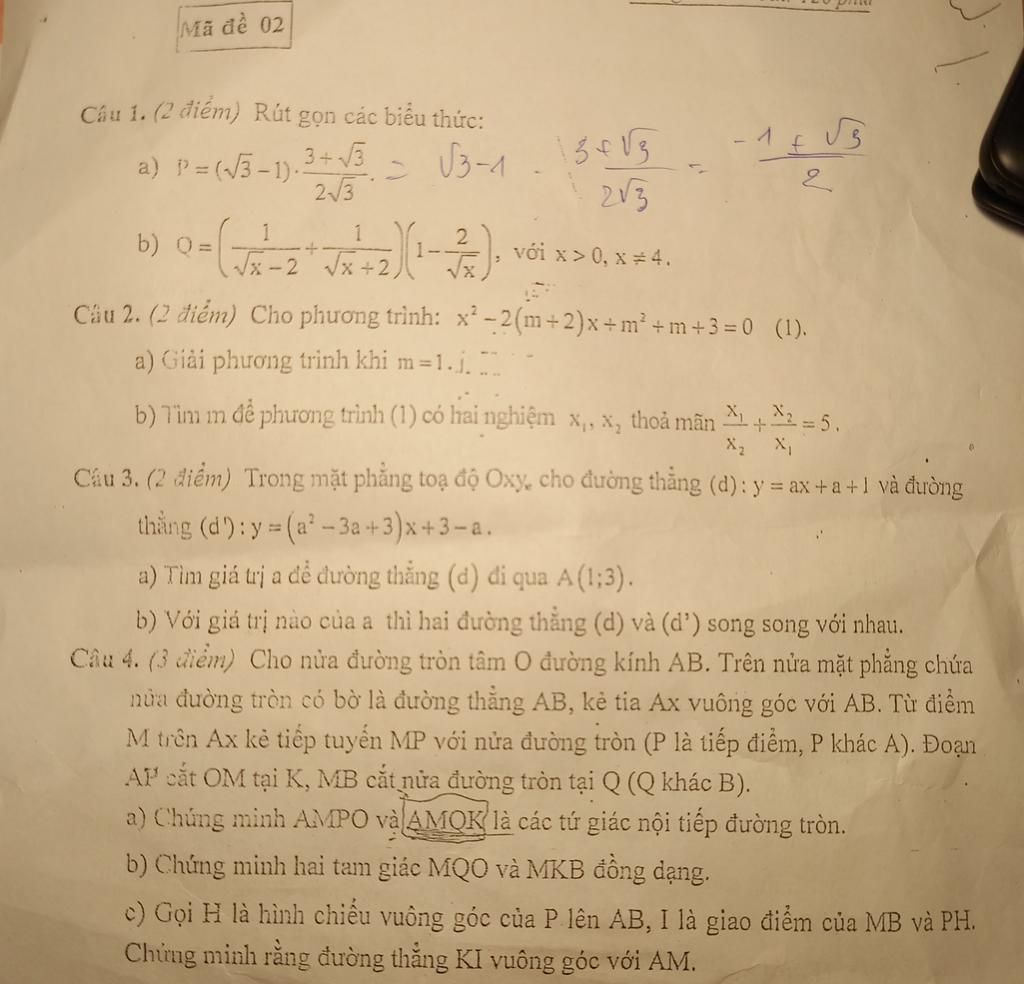 Mã đề 02
Câu 1. (2 điểm) Rút gọn các biểu thức:
a) P = (√3 − 1)·(3 + √3)/(2√3). = √3 - 1 · (3 + √3)/(2√3) = (-1 + √3)/2
b) Q = (1/(√x − 2) + 1/(√x + 2))(1 − 2/√x), với x > 0, x ≠ 4.
Câu 2. (2 điểm) Cho phương trình: x² − 2(m + 2)x + m² + m + 3 = 0 (1).
a) Giải phương trình khi m = 1.
b) Tìm m để phương trình (1) có hai nghiệm x₁, x₂ thoả mãn x₁/x₂ + x₂/x₁ = 5.
Câu 3. (2 điểm) Trong mặt phẳng toạ độ Oxy, cho đường thẳng (d): y = ax + a + 1 và đường
thẳng (d'): y = (a² − 3a + 3)x + 3 − a.
a) Tìm giá trị a để đường thẳng (d) đi qua A(1;3).
b) Với giá trị nào của a thì hai đường thẳng (d) và (d’) song song với nhau.
Câu 4. (3 điểm) Cho nửa đường tròn tâm O đường kính AB. Trên nửa mặt phẳng chứa
nửa đường tròn có bờ là đường thẳng AB, kẻ tia Ax vuông góc với AB. Từ điểm
M trên Ax kẻ tiếp tuyến MP với nửa đường tròn (P là tiếp điểm, P khác A). Đoạn
AP cắt OM tại K, MB cắt nửa đường tròn tại Q (Q khác B).
a) Chứng minh AMPO và AMQK là các tứ giác nội tiếp đường tròn.
b) Chứng minh hai tam giác MQO và MKB đồng dạng.
c) Gọi H là hình chiếu vuông góc của P lên AB, I là giao điểm của MB và PH.
Chứng minh rằng đường thẳng KI vuông góc với AM.